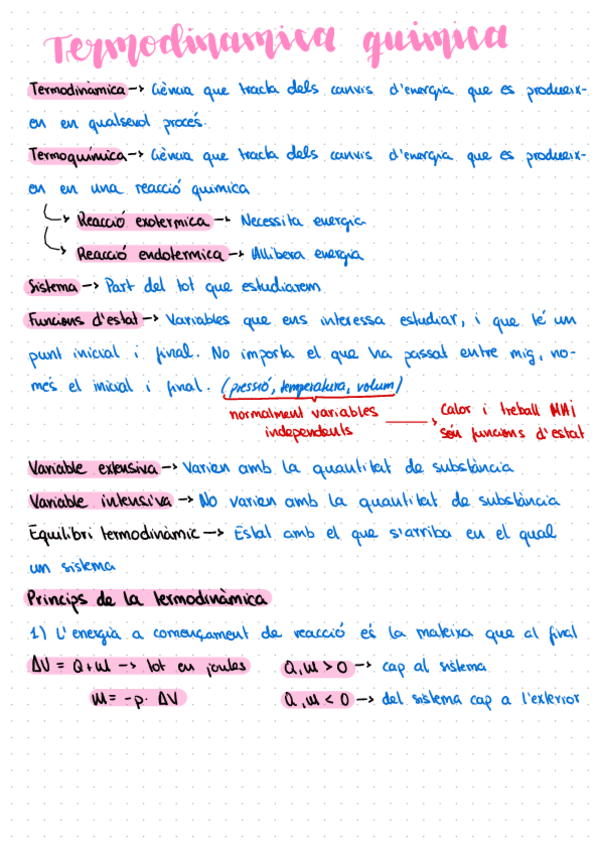 Termodinamica quimica
Termodinàmica -> Ciència que tracta dels canvis d'energia que es produeix-
en en qualsevol procés.
Termoquímica -> Ciència que tracta dels canvis d'energia que es produeix-
en en una reacció quimica
Reacció exotermica -> Necessita energia
Reacció endotermica -> Allibera energia
Sistema -> Part del tot que estudiarem
Funcions d'estat -> Variables que ens interessa estudiar, i que té un
punt inicial i final. No importa el que ha passat entre mig, no-
més el inicial i final. (pressió, temperatura, volum)
normalment variables
independents
Calor i treball MAI
són funcions d'estat
Variable extensiva -> Varien amb la quantitat de substància
Variable intensiva -> No varien amb la quantitat de substància
Equilibri termodinàmic -> Estat amb el que s'arriba en el qual
un sistema
Princips de la termodinàmica
1) L'energia a començament de reacció és la mateixa que al final
ΔU = Q+W -> tot en joules
Q,W > 0 -> cap al sistema
W = -p· ΔV
Q,W < 0 -> del sistema cap a l'exterior